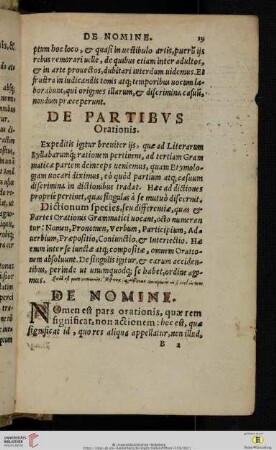 DE NOMINE. 19
ptum hoc loco, & quasi in vestibulo artis, puerũ ijs
rebus remorari uelle, de quibus etiam inter adultos, &
in arte prouectos, dubitari interdum uidemus. Et
frustra in iudicandis tonis atq; temporibus uocum la-
borabunt, qui origines illarum, & discrimina casuũ,
nondum præceperunt.
DE PARTIBVS
Orationis.
Expeditis igitur breuiter ijs, quæ ad Literarum
Syllabarumq; rationem pertinent, ad tertiam Gram
maticæ partem deinceps uenimus, quam Etymolo-
giam uocari diximus, eò quòd partium atq; casuum
discrimina in dictionibus tradat. Hæc ad dictiones
propriè pertinet, quas singulas à se mutuò discernit.
Dictionum species, seu differentiæ, quas &
Partes Orationis Grammatici uocant, octo numeran
tur: Nomen, Pronomen, Verbum, Participium, Ad-
uerbium, Præpositio, Coniunctio, & Interiectio. Hæ
enim inter se iunctæ atq; compositæ, omnem Oratio-
nem absoluunt. De singulis igitur, & earum acciden-
tibus, perinde ut unumquodq; se habet, ordine age-
mus.
DE NOMINE.
NOmen est pars orationis, quæ rem
significat, non actionem: hoc est, quæ
significat id, quo res aliqua appellatur, non illud,
B 2